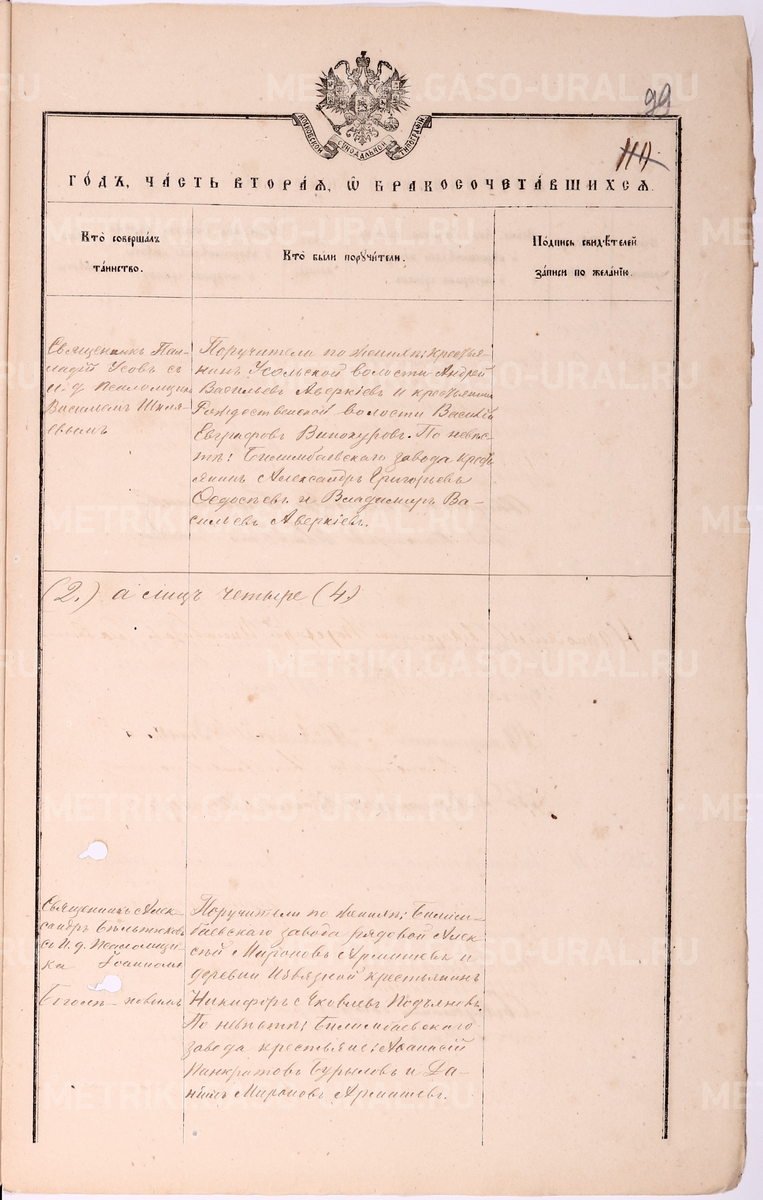 99
МОСКОВСКОЙ СѴНОДАЛЬНОЙ ТИПОГРАФІИ
ГО́ДЪ, ЧА́СТЬ ВТОРА́Я, Ѡ БРАКОСОЧЕТА́ВШИХСЯ.
Кто̀ соверша́лъ
та́инство.
Кто̀ бы́ли порꙋчи́тели.
По́дпись свидѣ́телей
за́писи по жела́нію.
Священникъ Пал-
ладій Усовъ съ
и. д. псаломщик
Василіемъ Шиля-
евымъ
Поручители по женихѣ: кресть-
янинъ Усольской волости Андрей
Васильевъ Аверкіевъ и крестьянинъ
Рождественской волости Василій
Евграфовъ Винокуровъ. По невѣс-
тѣ: Билимбаевскаго завода крест
янинъ Александръ Григорьевъ
Ѳедосѣевъ и Владимиръ Ва-
сильевъ Аверкіевъ.
(2.) а лицъ четыре (4.)
Священникъ Алек-
сандръ
съ и. д. псаломщи-
ка Іоанномъ
Богол повымъ
Поручители по женихѣ: Билим-
баевскаго завода рядовой Алек
сѣй Мироновъ Армишевъ и
деревни Извязной крестьянинъ
Никифоръ Яковлевъ Подъяновъ.
По невѣстѣ: Билимбаевскаго
завода крестьяне: Аѳанасій
Панкратовъ Бурыловъ и Да-
ніилъ Мироновъ Армишевъ.
METRIKI.GASO-URAL.RU